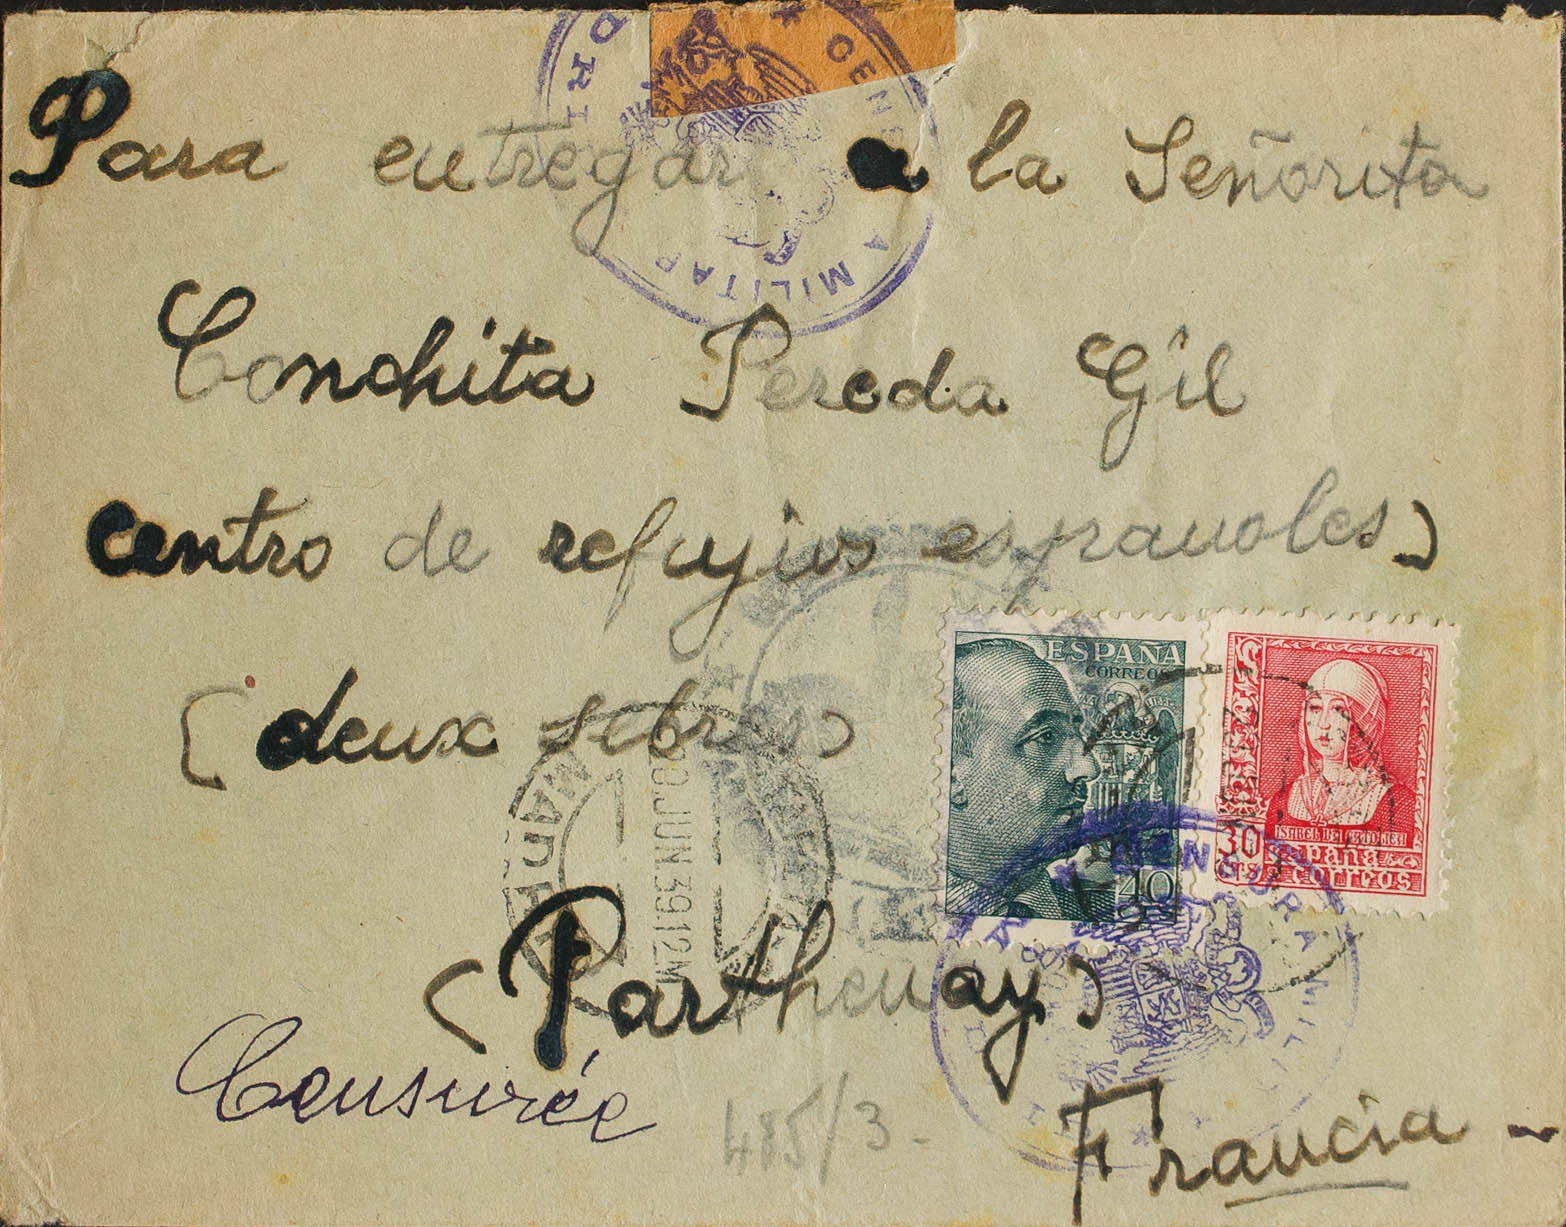 Para entregar a la Señorita
Conchita Pereda Gil
centro de refujios espanoles)
(deux sebres)
(Parthenay)
Francia -
Censurée
485/3-
ESPAÑA
CORREOS
40
30
CTS
ISABEL LA CATOLICA
España
correos
CENSURA MILITAR
CENSURA MILITAR
MADRID
20.JUN39.12M